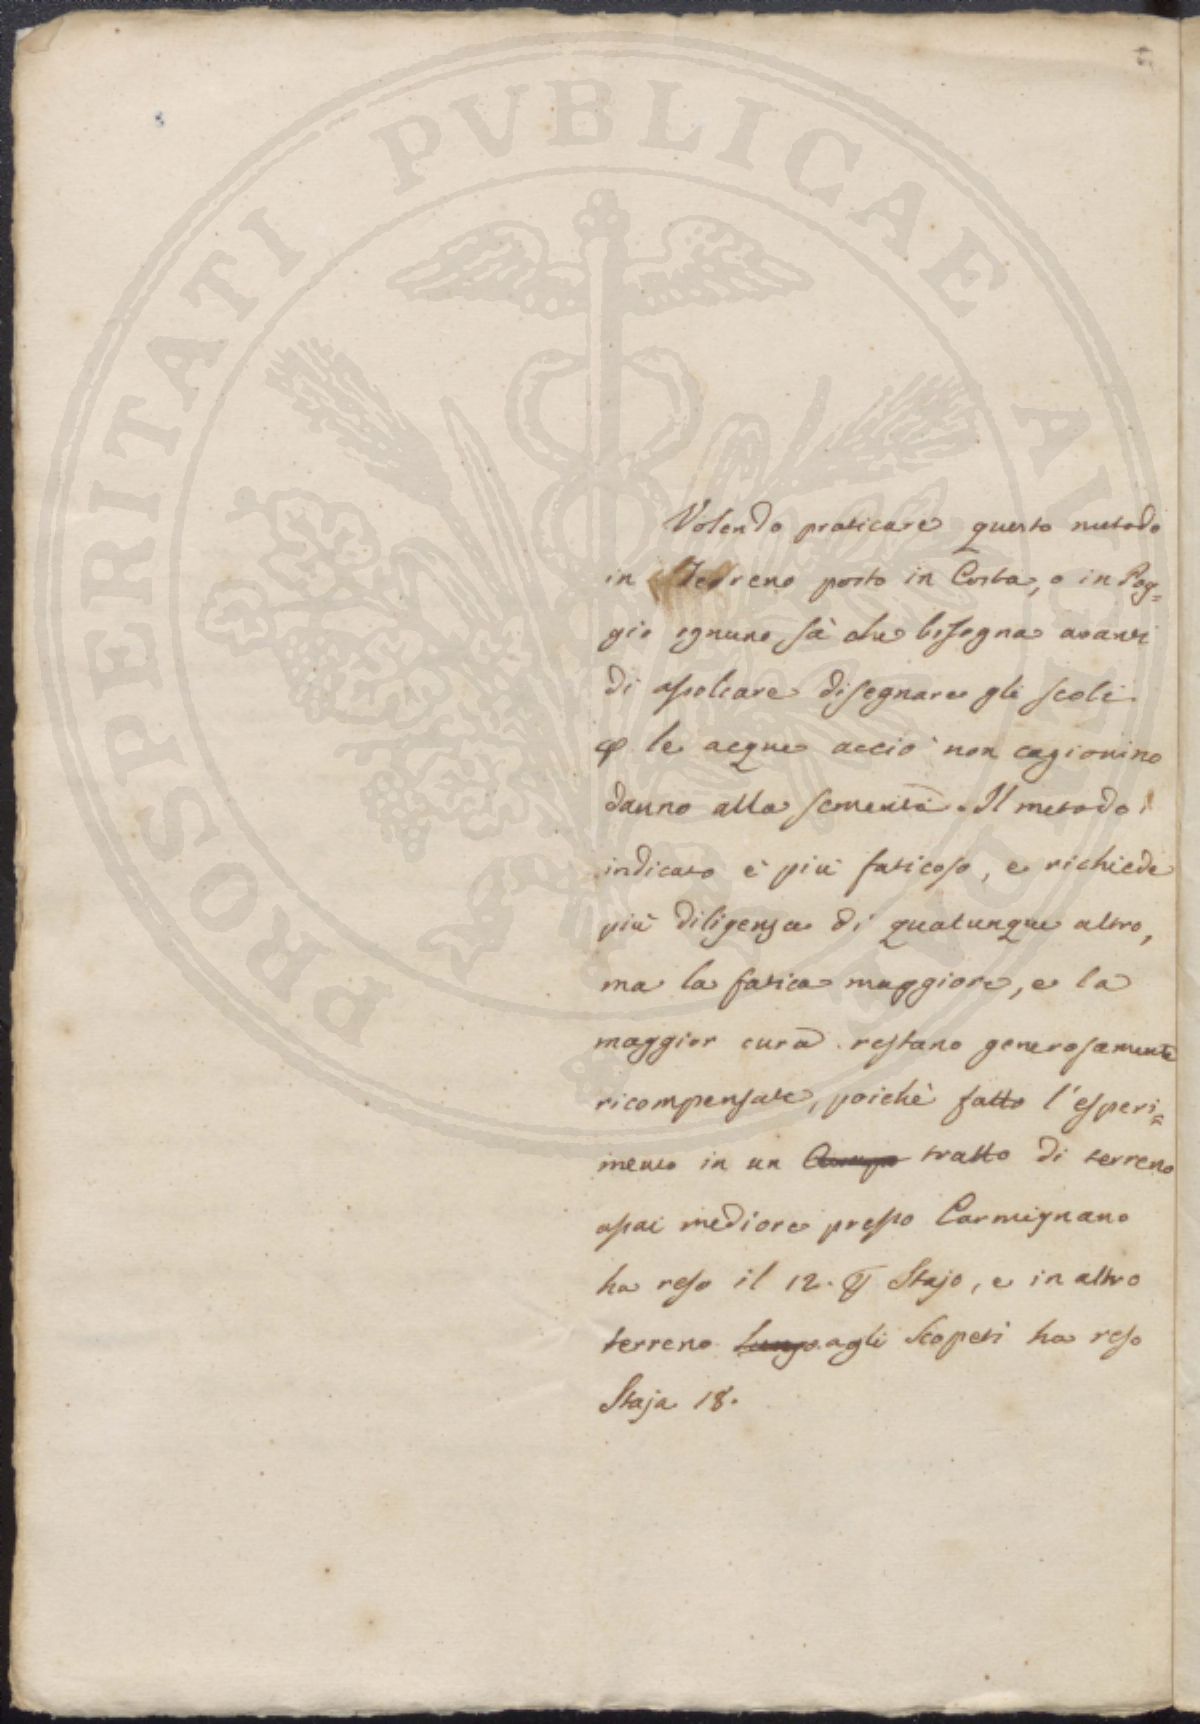 PROSPERITATI PUBLICAE AUGENDAE
Volendo praticare questo metodo
in Terreno posto in Costa, o in Pog=
gio ognuno sà che bisogna avanti
di assolcare disegnare gli scoli
p le acque acciò non cagionino
danno alla sementa. Il metodo
indicato è più faticoso, e richiede
più diligenza di qualunque altro,
ma la fatica maggiore, e la
maggior cura restano generosamente
ricompensate, poichè fatto l'esperi=
mento in un Campo tratto di terreno
assai mediocre presso Carmignano
ha reso il 12. Stajo, e in altro
terreno agli Scopeti ha reso
Staja 18.